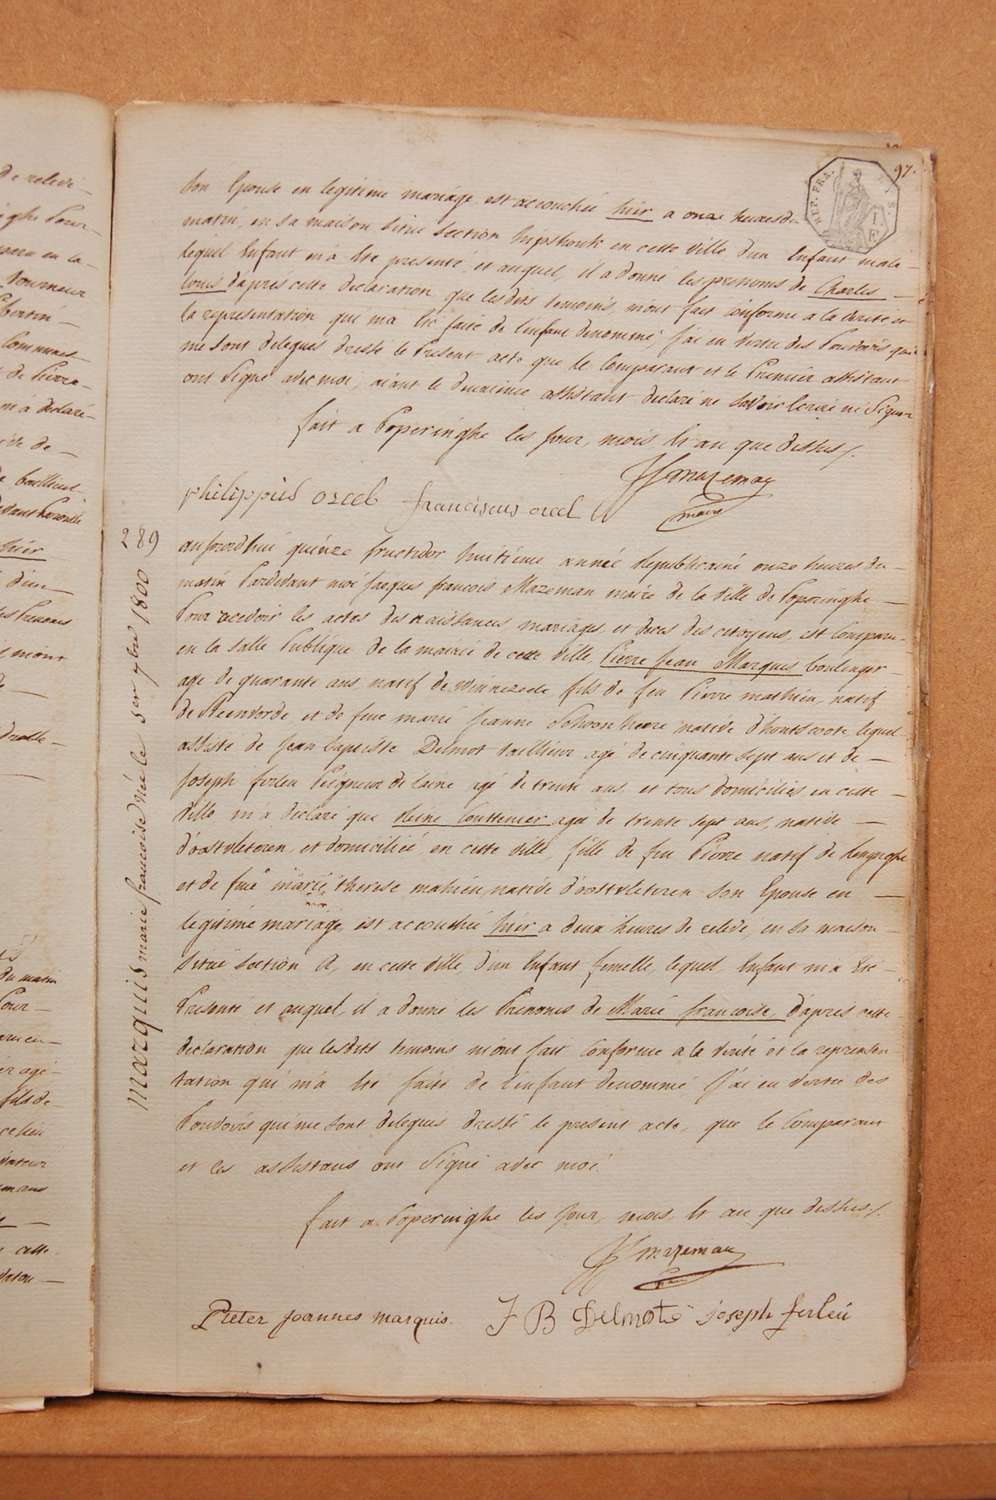 97.
REP. FRA.
son Epouse en legitime mariage est accouchée hier a onze heures du
matin, en sa maison situé section hipshouk en cette ville d'un Enfant male
lequel Enfant m'a été presenté, et auquel, il a donné les prenoms de Charles
Louis d'après cette declaration que lesdits temoins m'ont fait conforme a la verité et
la representation qui m'a été faite de l'enfant denommé, j'ai en vertu des Pouvoirs qui
me sont delegués dressé le Present acte que le Comparant et le Premier assistant
ont Signé avec moi, aiant le deuxieme assistant declaré ne Savoir Ecrire ni Signer
fait a Poperinghe les jour, mois Et an que dessus /.
JJ mazeman
maire
philippus orcel franciscus orcel
289
aujourdhui quinze fructidor huitieme année Republicaine onze heures du
matin Pardevant moi Jacques francois Mazeman maire de la ville de Poperinghe
Pour recevoir les actes des naissances mariages et deces des citoyens, est Comparu
en la salle Publique de la mairie de cette ville, Pierre Jean Marquis boulanger
agé de quarante ans natif de Winnezeele fils de feu Pierre mathieu, natif
de Steenvorde et de feue marie Jeanne Schoonheere native d'hontscoote lequel
assisté de Jean baptiste Delmot tailleur agé de cinquante sept ans et de
Joseph ferleu Peigneur de laine agé de trente ans et tous domiciliés en cette
ville m'a declaré que Reine Couttenier agée de trente sept ans, native
d'oostvleteren et domiciliée en cette ville, fille de feu Pierre natif de
et de feue marie therese mahieu, native d'oostvleteren son Epouse en
legitime mariage, est accouchée hier a deux heures de relevé, en sa maison
Située Section A, en cette ville, d'un Enfant femelle, lequel Enfant m'a Eté
Presenté et auquel, il a donné les Prenoms de Marie françoise, d'après cette
declaration que lesdits temoins m'ont fait conforme a la verité et la represen-
tation qui m'a été faite de l'enfant denommé J'ai en vertu des
Pouvoirs qui me sont delegués dressé le present acte, que le Comparant
et les assistans ont Signé avec moi.
fait a Poperinghe les Jour, mois, Et an que dessus /.
JJ mazeman
Pieter joannes marquis. J B Delmotte joseph ferleu
marquis marie francoise Née le 1er 7bre 1800